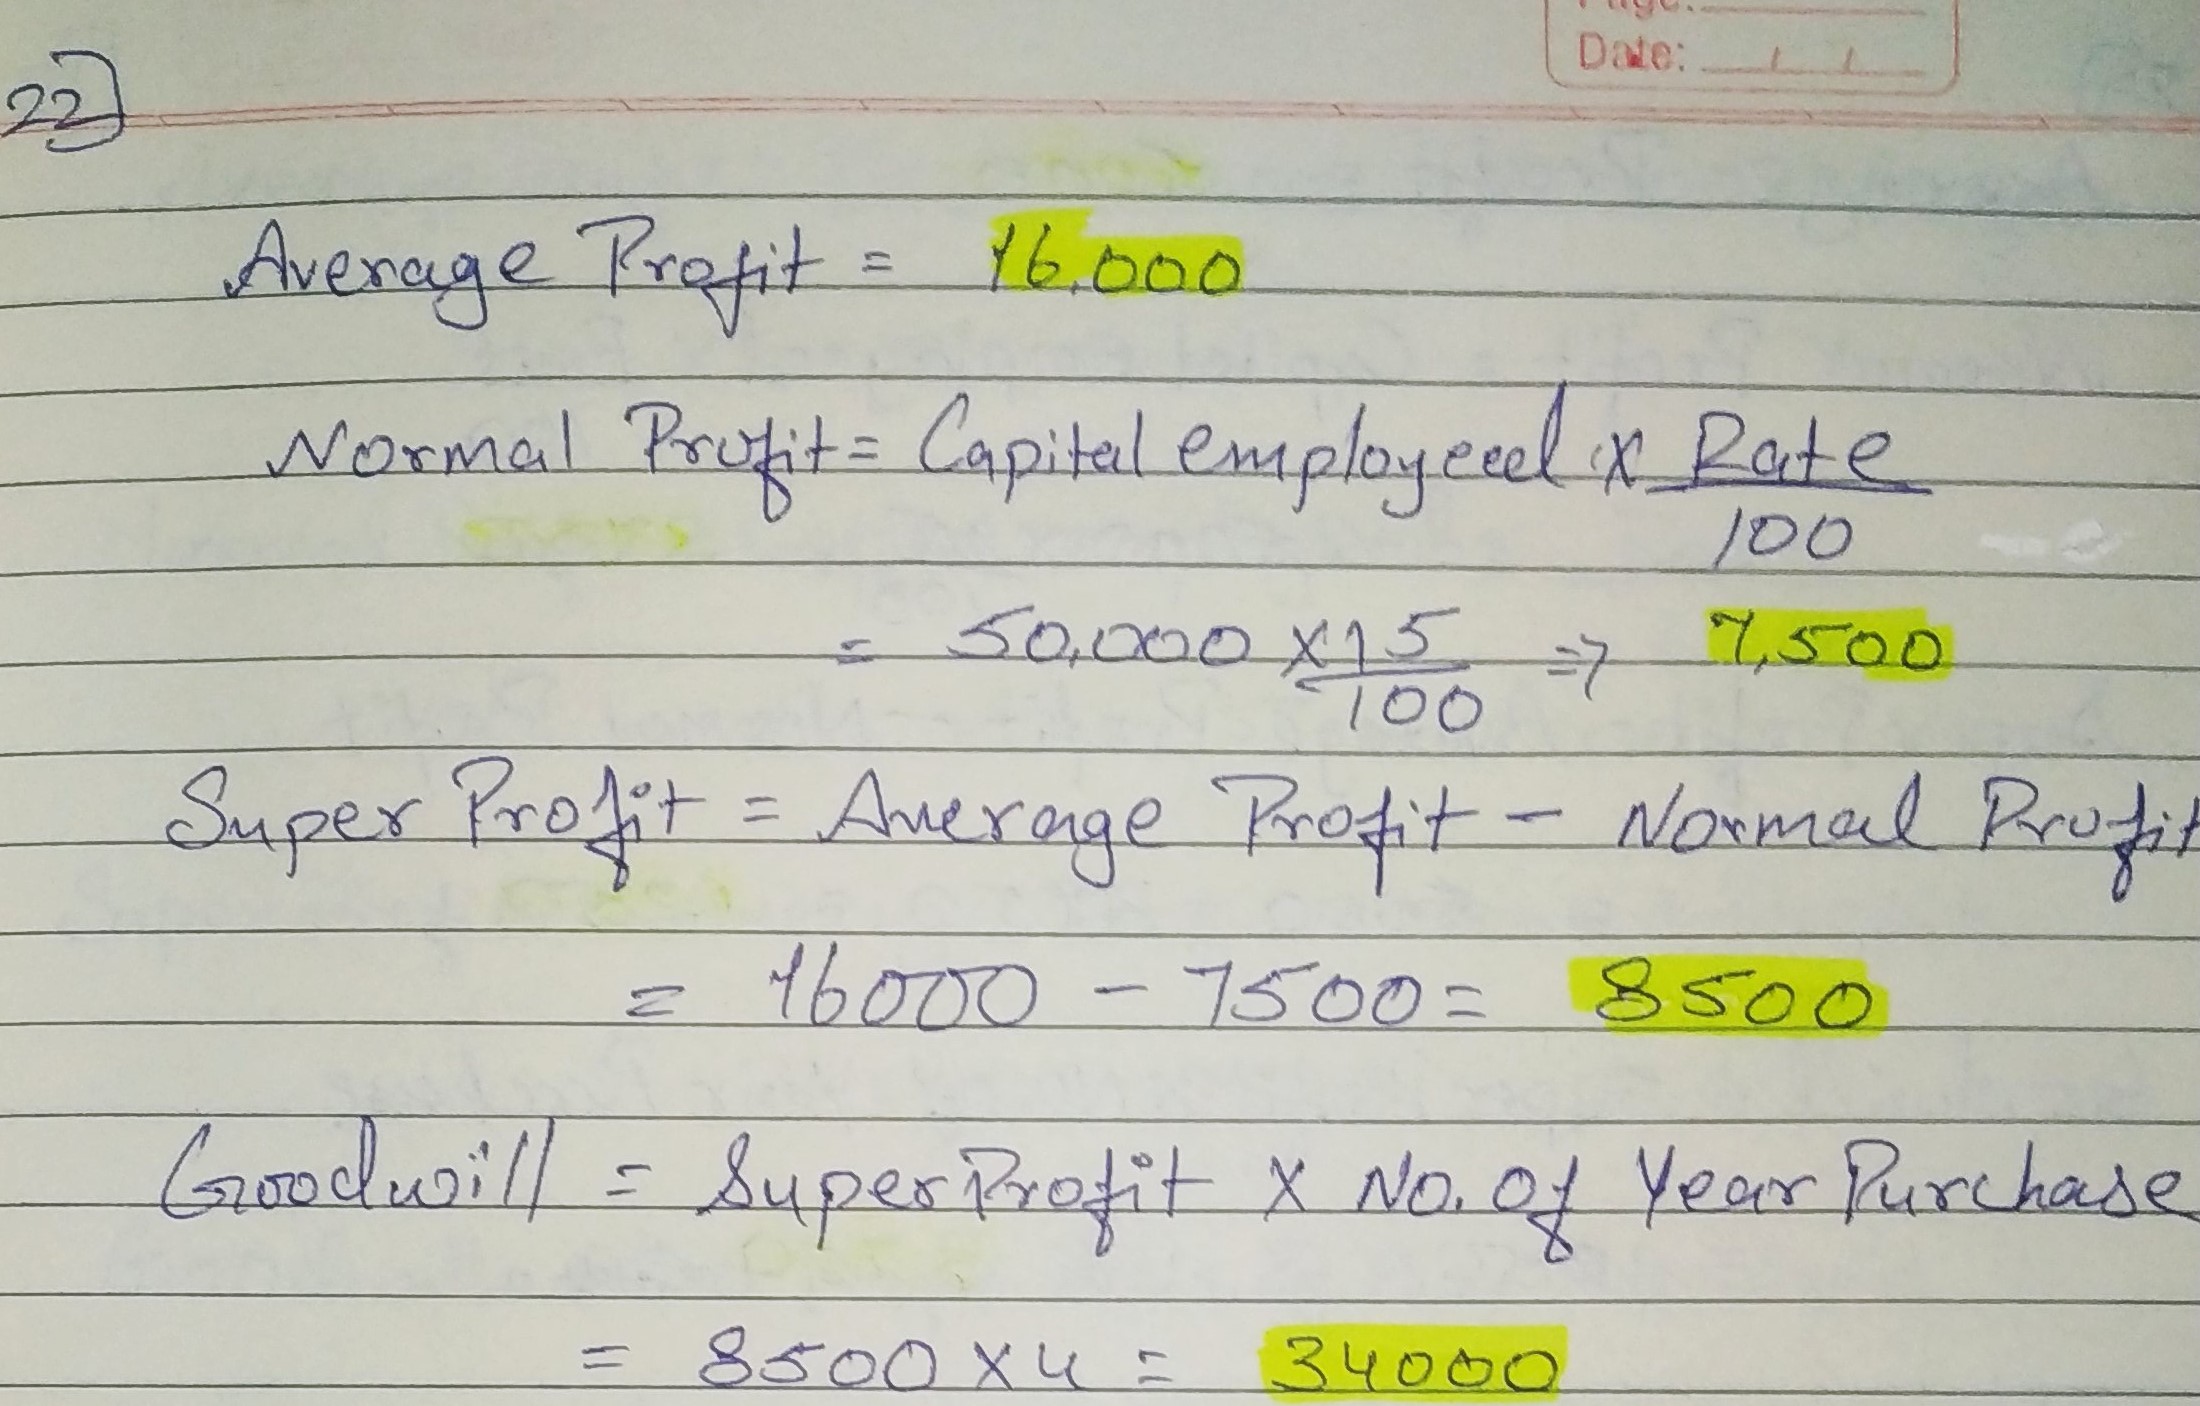 Page:
Date:
22)
Average Profit = 16,000
Normal Profit = Capital employeed x Rate
100
= 50,000 x 15 => 7,500
100
Super Profit = Average Profit - Normal Profit
= 16000 - 7500 = 8500
Goodwill = Super Profit x No. of Year Purchase
= 8500 x 4 = 34000